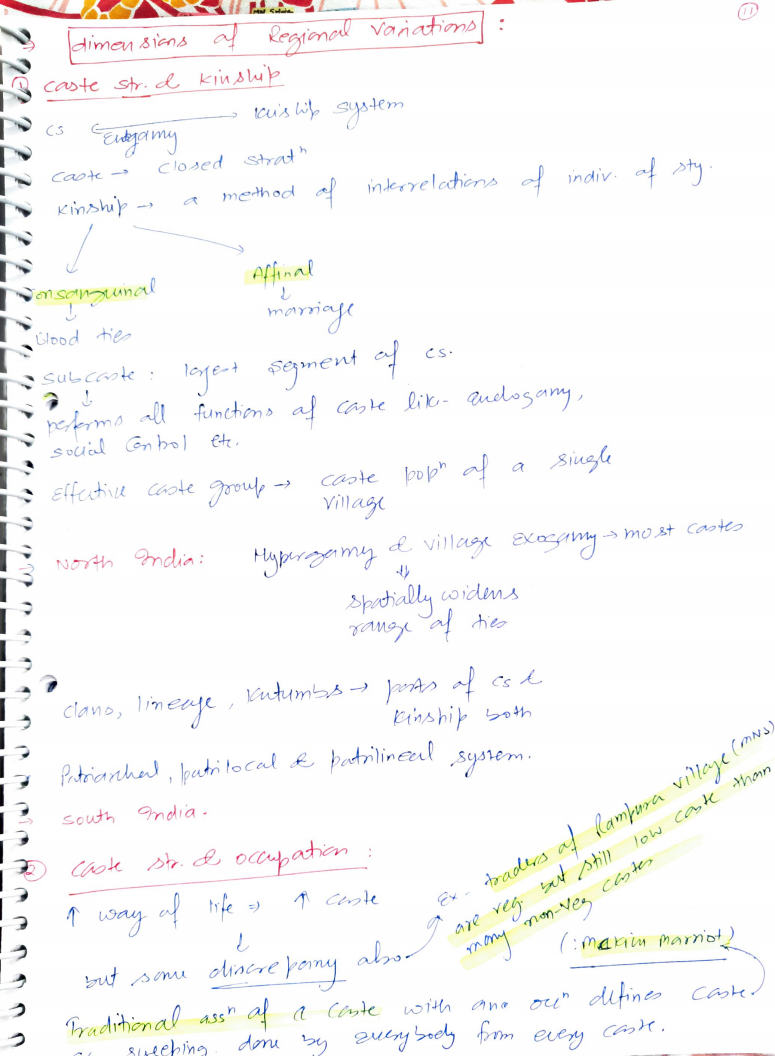 11
dimensions of Regional Variations :
① Caste str. & Kinship
CS Endogamy kinship system
Caste → closed stratⁿ
Kinship → a method of interrelations of indiv. of sty.
onsanguinal Affinal
↓ ↓
blood ties marriage
Subcaste : largest segment of cs.
↓
performs all functions of caste like- endogamy,
social control etc.
Effective caste group → caste popⁿ of a single
village
→ North India : Hypergamy & village exogamy → most castes
⇓
spatially widens
range of ties
clans, lineage, kutumbs → parts of cs &
kinship both
Patriarchal, patrilocal & patrilineal system.
→ South India.
② Caste str. & occupation :
↑ way of life ⇒ ↑ caste
↓
but some discrepancy also
Ex- traders of Rampura village (MNS)
are veg. but still low caste than
many non-veg castes
(: Mckim marriot)
Traditional assⁿ of a caste with one occⁿ defines caste.
sweeping done by everybody from every caste.